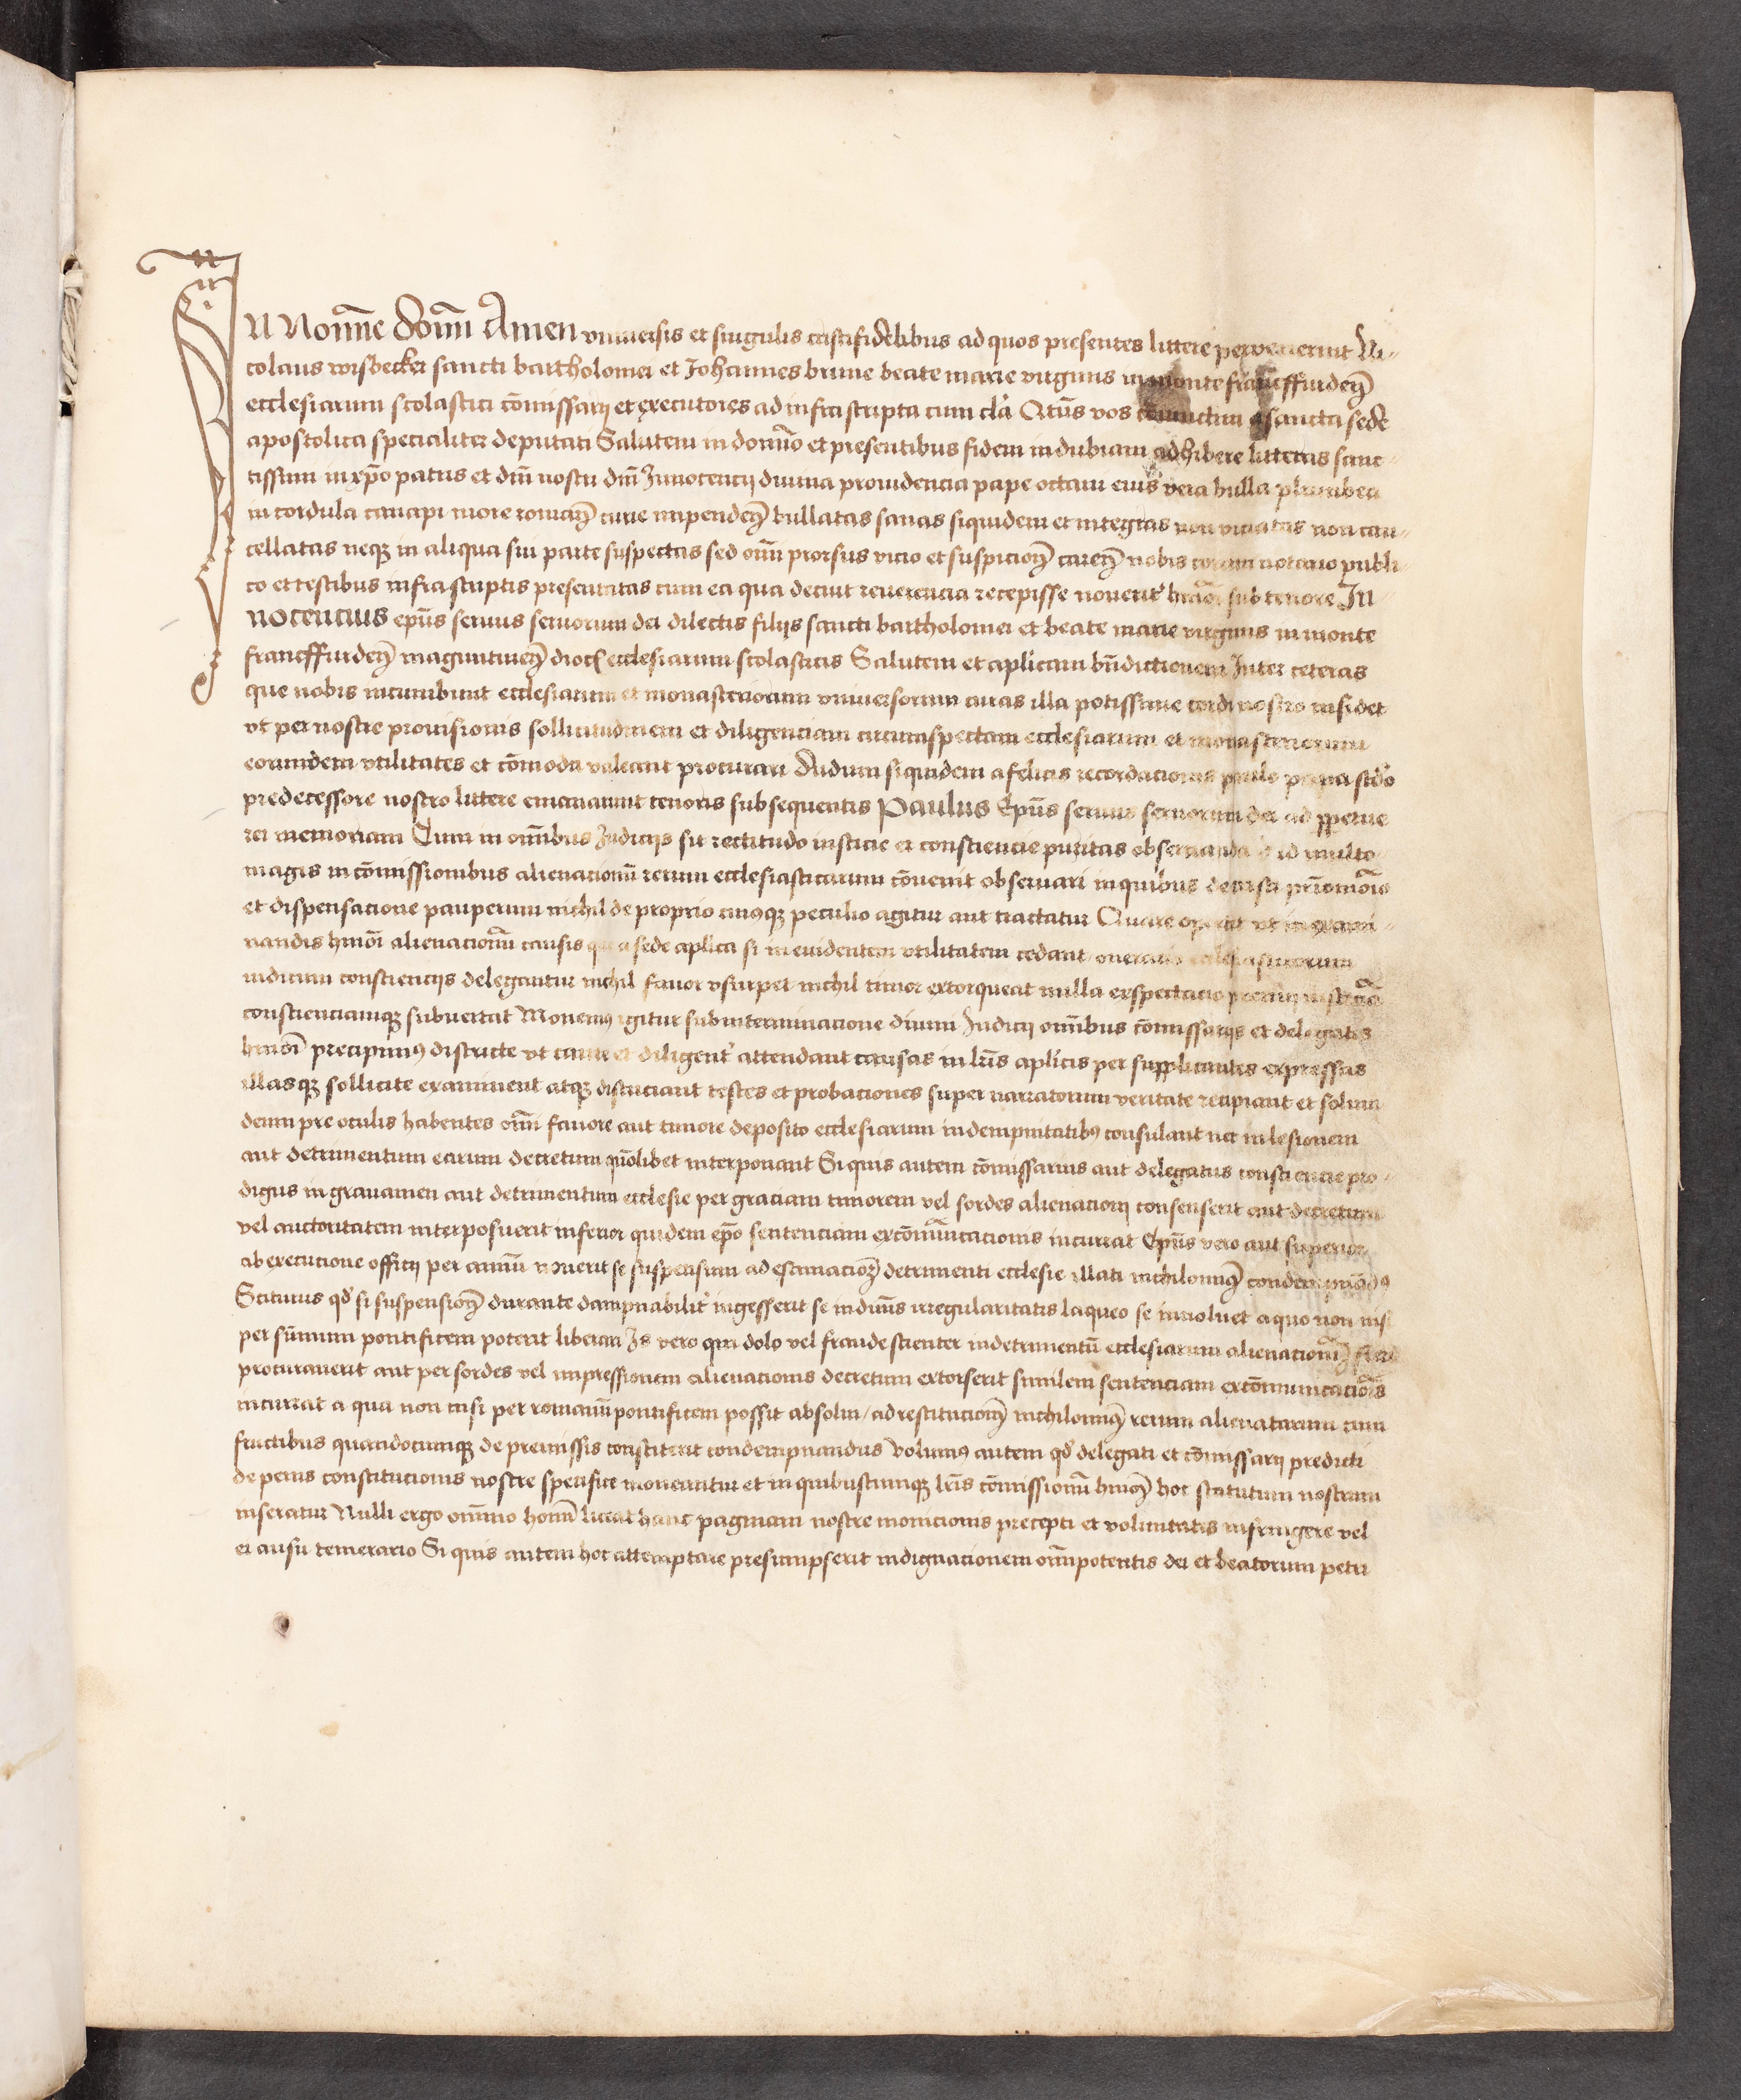 In Nomine domini Amen vniuersis et singulis cristifidelibus ad quos presentes littere peruenerint Ni-
colaus wisbecker sancti bartholomei et Johannes brune beate marie virginis in monte franckffurdeñ
ecclesiarum scolastici cōmissarij et executores ad infrascripta cum clā Qtūs vos sancta sede
apostolica specialiter deputati Salutem in domino et presentibus fidem indubiam adhibere litteras sanc-
tissimi in xp̄o patris et dn̄i nostri dn̄i Innocencij diuina prouidencia pape octaui eius vera bulla plumbea
in cordula canapi more romañ curie impendeñ bullatas sanas siquidem et integras non viciatas non can-
cellatas neqȝ in aliqua sui parte suspectas sed om̄i prorsus vicio et suspicioñ careñ nobis coram notario publi-
co et testibus infrascriptis presentatas cum ea qua decuit reuerencia recepisse nouerit' hm̄ōi sub tenore In-
nocencius ep̄us seruus seruorum dei dilectis filijs sancti bartholomei et beate marie virginis in monte
franckffurdeñ maguntineñ dioc̄ ecclesiarum scolasticis Salutem et aplicam bn̄dictionem Inter ceteras
que nobis incumbunt ecclesiarum et monasteriorum vniuersorum curas illa potissime cordi nostro insidet
vt per nostre prouisionis sollicitudinem et diligenciam circumspectam ecclesiarum et monasteriorum
eorundem vtilitates et cōmoda valeant procurari Dudum siquidem a felicis recordacionis paulo papa scd̄o
predecessore nostro littere emanarunt tenoris subsequentis Paulus Ep̄us seruus seruorum dei ad ꝑpetue
rei memoriam Cum in om̄ibus Judicijs sit rectitudo iusticie et consciencie puritas obseruanda id multo
magis in cōmissionibus alienacionū rerum ecclesiasticarum cōuenit obseruari in quibus de cristi p̄rimōio
et dispensacione pauperum nichil de proprio cuiusqȝ peculio agitur aut tractatur Quare oportet vt in exami-
nandis hm̄ōi alienacionū causis que a sede aplica si in euidentem vtilitatem cedant oneratis ecclesiasticorum
iudicum consciencijs delegantur nichil fauor vsurpet nichil timor extorqueat nulla exspectacio premij iusticiā
conscienciamqȝ subuertat Monemus igitur sub interminacione diuini Judicij om̄ibus cōmissarijs et delegatis
hm̄ōi precipimus districte vt caute et diligent' attendant causas in lr̄is aplicis per supplicantes expressas
illasqȝ sollicite examinent atqȝ discuciant testes et probaciones super narratorum veritate recipiant et solum
deum pre oculis habentes om̄i fauore aut timore deposito ecclesiarum indempnitatibus consulant nec in lesionem
aut detrimentum earum decretum quōlibet interponant Si quis autem cōmissarius aut delegatus consciencie pro-
digus in grauamen aut detrimentum ecclesie per graciam timorem vel sordes alienacioni consenserit aut decretum
vel auctoritatem interposuerit inferior quidem ep̄o sentenciam excōmūicacionis incurrat Ep̄us vero aut superior
ab execucione officij per annū nouerit se suspensum ad estimacioñ detrimenti ecclesie illati nichilominꝰ condempnādꝰ
Sciturus qd' si suspensioñ durante dampnabilit' ingesserit se in diuīs irregularitatis laqueo se inuoluet a quo non nisi
per sūmum pontificem poterit liberari Is vero qui dolo vel fraude scienter in detrimentū ecclesiarum alienacionem fieri
procurauerit aut per sordes vel impressionem alienacionis decretum extorserit similem sentenciam excōmunicacionis
incurrat a qua non nisi per romanū pontificem possit absolui / ad restitucioñ nichilominꝰ rerum alienatarum cum
fructibus quandocumqȝ de premissis constiterit condempnandus Volumus autem qd' delegati et cōmissarij predicti
de penis constitucionis nostre specifice moneantur et in quibuscumqȝ lr̄is cōmissionū hm̄ōi hoc statutum nostrum
inseratur Nulli ergo omnino homī liceat hanc paginam nostre monicionis precepti et voluntatis infringere vel
ei ausu temerario Si quis autem hoc attemptare presumpserit indignacionem om̄ipotentis dei et beatorum petri